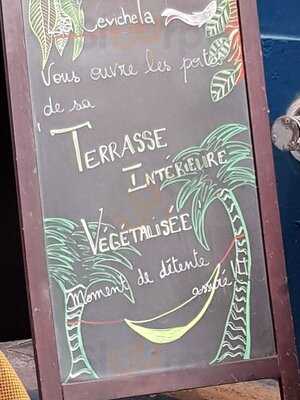 La Cevichela
Vous ouvre les portes
de sa
TERRASSE
INTÉRIEURE
VÉGÉTALISÉE
Moment de détente
assuré !!